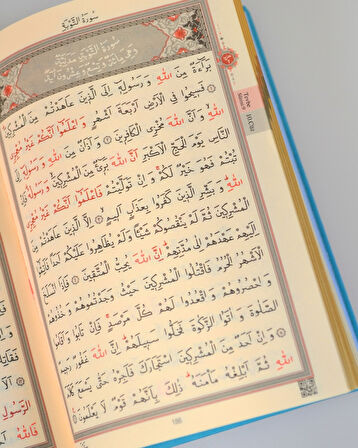 سُورَةُ التَّوْبَةِ
سُورَةُ التَّوْبَةِ مَدَنِيَّةٌ
وَهِيَ مِائَةٌ وَتِسْعٌ وَعِشْرُونَ آيَةً
بَرَٓاءَةٌ مِنَ اللّٰهِ وَرَسُولِهِٓ اِلَى الَّذِينَ عَاهَدْتُمْ مِنَ الْمُشْرِكِينَ
﴿١﴾ فَسِيحُوا فِي الْاَرْضِ اَرْبَعَةَ اَشْهُرٍ وَاعْلَمُٓوا اَنَّكُمْ غَيْرُ مُعْجِزِي
اللّٰهِ وَاَنَّ اللّٰهَ مُخْزِي الْكَافِرِينَ ﴿٢﴾ وَاَذَانٌ مِنَ اللّٰهِ وَرَسُولِهِٓ اِلَى
النَّاسِ يَوْمَ الْحَجِّ الْاَكْبَرِ اَنَّ اللّٰهَ بَرِٓيءٌ مِنَ الْمُشْرِكِينَ وَرَسُولُهُ فَاِنْ
تُبْتُمْ فَهُوَ خَيْرٌ لَكُمْ وَاِنْ تَوَلَّيْتُمْ فَاعْلَمُٓوا اَنَّكُمْ غَيْرُ مُعْجِزِي
اللّٰهِ وَبَشِّرِ الَّذِينَ كَفَرُوا بِعَذَابٍ اَلِيمٍ ﴿٣﴾ اِلَّا الَّذِينَ عَاهَدْتُمْ مِنَ
الْمُشْرِكِينَ ثُمَّ لَمْ يَنْقُصُوكُمْ شَيْـًٔا وَلَمْ يُظَاهِرُوا عَلَيْكُمْ اَحَدًا فَاَتِمُّٓوا
اِلَيْهِمْ عَهْدَهُمْ اِلٰى مُدَّتِهِمْ اِنَّ اللّٰهَ يُحِبُّ الْمُتَّقِينَ ﴿٤﴾ فَاِذَا انْسَلَخَ
الْاَشْهُرُ الْحُرُمُ فَاقْتُلُوا الْمُشْرِكِينَ حَيْثُ وَجَدْتُمُوهُمْ وَخُذُوهُمْ
وَاحْصُرُوهُمْ وَاقْعُدُوا لَهُمْ كُلَّ مَرْصَدٍ فَاِنْ تَابُوا وَاَقَامُوا
الصَّلٰوةَ وَاٰتَوُا الزَّكٰوةَ فَخَلُّوا سَبِيلَهُمْ اِنَّ اللّٰهَ غَفُورٌ رَحِيمٌ
﴿٥﴾ وَاِنْ اَحَدٌ مِنَ الْمُشْرِكِينَ اسْتَجَارَكَ فَاَجِرْهُ حَتّٰى يَسْمَعَ كَلَامَ
اللّٰهِ ثُمَّ اَبْلِغْهُ مَاْمَنَهُ ذٰلِكَ بِاَنَّهُمْ قَوْمٌ لَا يَعْلَمُونَ ﴿٦﴾
186
الرَّسُولِ
فَاللّٰهُ